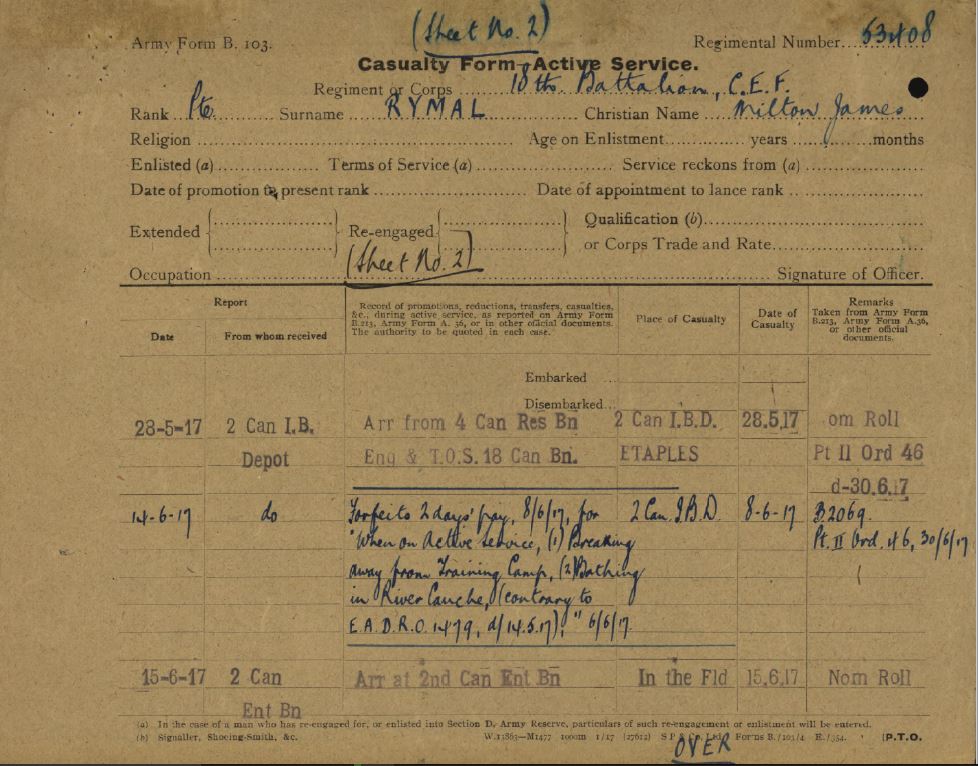 (Sheet No. 2)
Army Form B. 103.
Regimental Number 53408
Casualty Form—Active Service.
Regiment or Corps 18th. Battalion, C.E.F.
Rank Pte. Surname RYMAL Christian Name Milton James
Religion Age on Enlistment years months
Enlisted (a) Terms of Service (a) Service reckons from (a)
Date of promotion to present rank Date of appointment to lance rank
Extended Re-engaged Qualification (b)
or Corps Trade and Rate
(Sheet No. 2)
Occupation Signature of Officer.
Report
Date From whom received
Record of promotions, reductions, transfers, casualties,
&c., during active service, as reported on Army Form
B.213, Army Form A. 36, or in other official documents.
The authority to be quoted in each case.
Place of Casualty
Date of
Casualty
Remarks
Taken from Army Form
B.213, Army Form A.36,
or other official
documents.
Embarked
Disembarked
28-5-17 2 Can I.B. Arr from 4 Can Res Bn 2 Can I.B.D. 28.5.17 om Roll
Depot Eng & T.O.S. 18 Can Bn. ETAPLES Pt II Ord 46
d-30.6.17
14-6-17 do Forfeits 2 days' pay, 8/6/17, for 2 Can. I.B.D. 8-6-17 B2069.
"When on Active Service, (1) Breaking Pt. II Ord. 46, 30/6/17
away from Training Camp, (2) Bathing
in River Canche, (contrary to
E.A.D.R.O. 1479, d/14.5.17)," 6/6/17.
15-6-17 2 Can Arr at 2nd Can Ent Bn In the Fld 15.6.17 Nom Roll
Ent Bn
(a) In the case of a man who has re-engaged for, or enlisted into Section D, Army Reserve, particulars of such re-engagement or enlistment will be entered.
(b) Signaller, Shoeing-Smith, &c. W.13863—M1477 1000m 1/17 (27612) S P & Co. Ltd. Forms B./103/4 E./354. P.T.O.
OVER